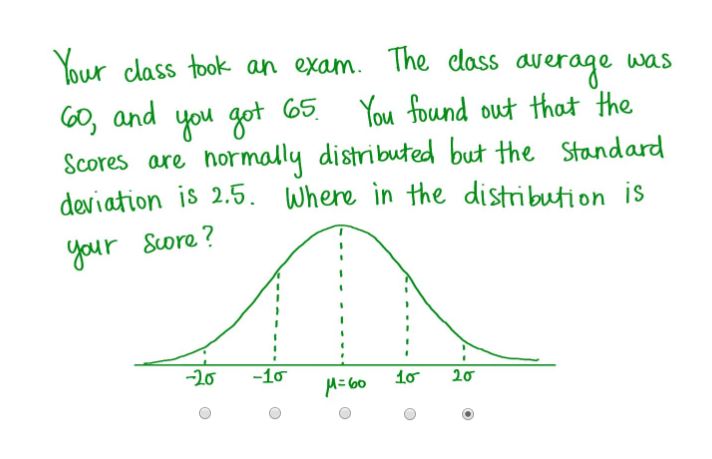 Your class took an exam. The class average was
60, and you got 65. You found out that the
Scores are normally distributed but the standard
deviation is 2.5. Where in the distribution is
your score?
-2σ -1σ μ=60 1σ 2σ